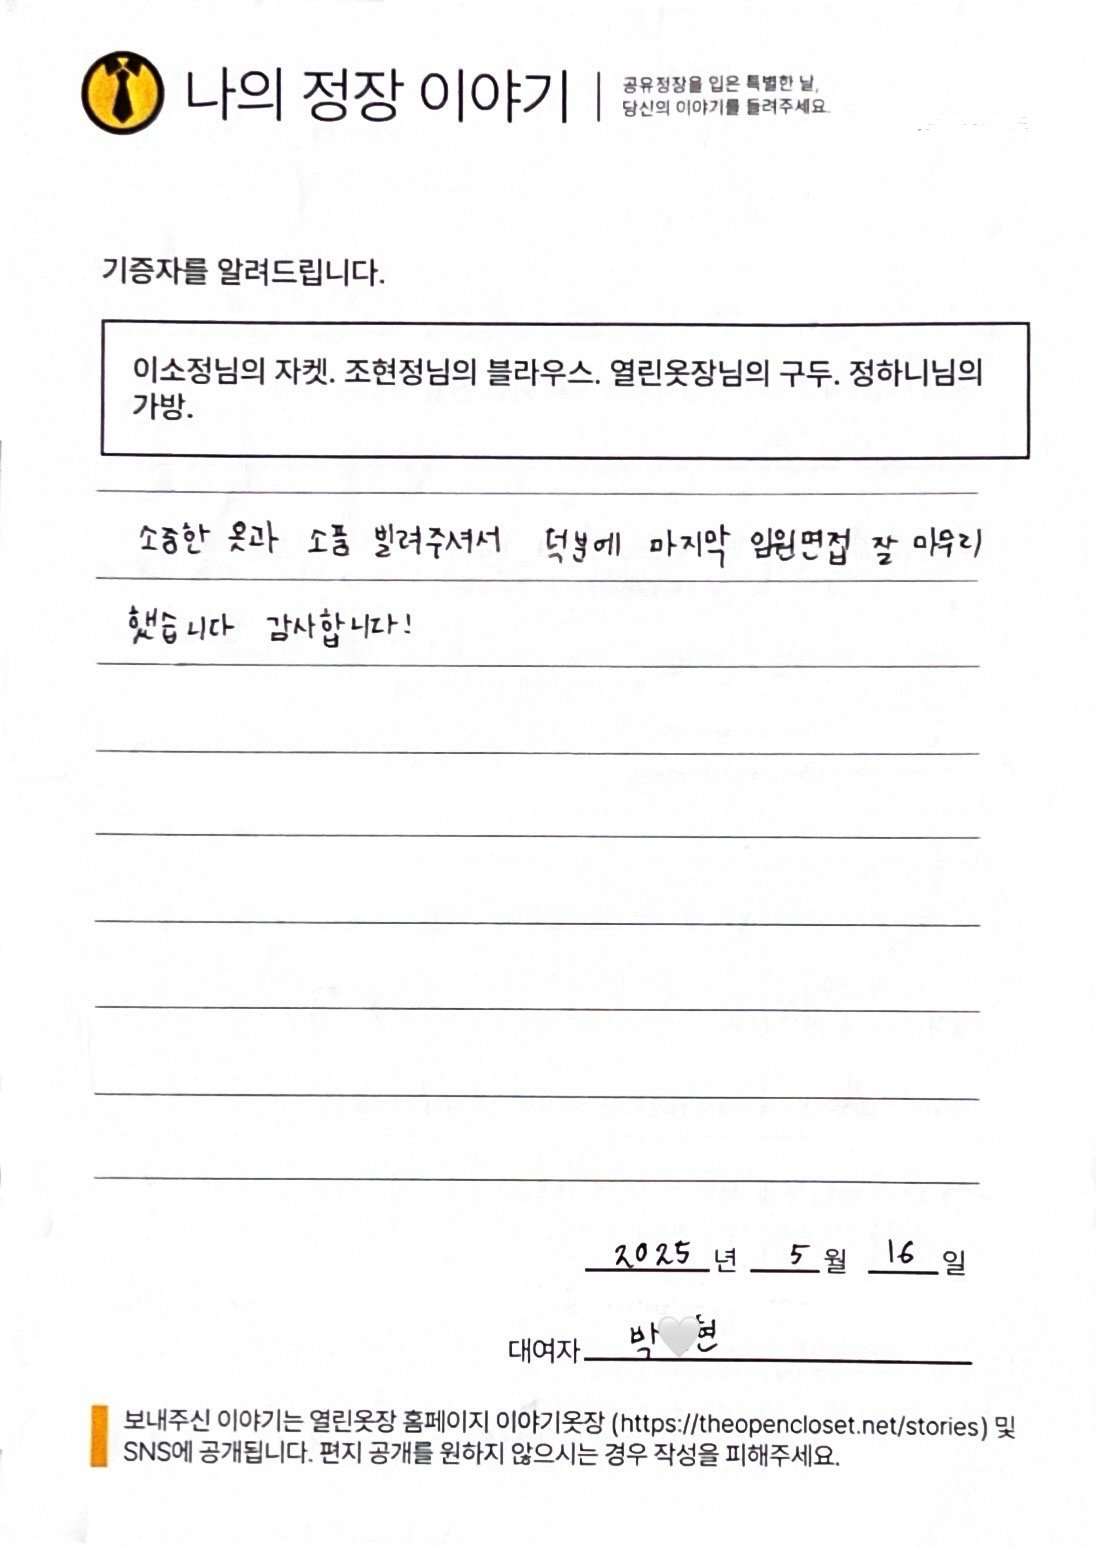 나의 정장 이야기
공유정장을 입은 특별한 날,
당신의 이야기를 들려주세요.
기증자를 알려드립니다.
이소정님의 자켓. 조현정님의 블라우스. 열린옷장님의 구두. 정하니님의
가방.
소중한 옷과 소품 빌려주셔서 덕분에 마지막 임원면접 잘 마무리
했습니다 감사합니다!
2025 년 5 월 16 일
대여자 박🤍현
보내주신 이야기는 열린옷장 홈페이지 이야기옷장 (https://theopencloset.net/stories) 및
SNS에 공개됩니다. 편지 공개를 원하지 않으시는 경우 작성을 피해주세요.